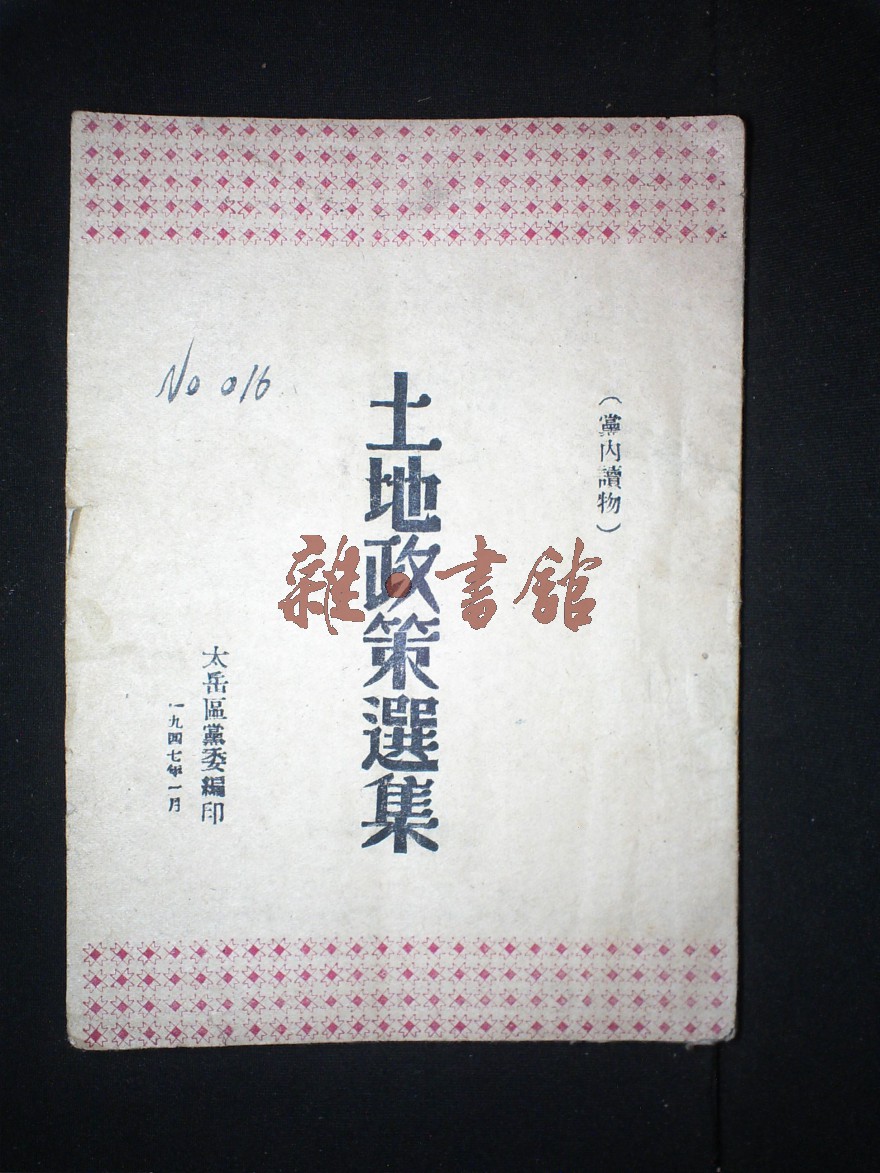 （黨内讀物）
土地政策選集
No 016
太岳區黨委編印
一九四七年一月
雜·書館